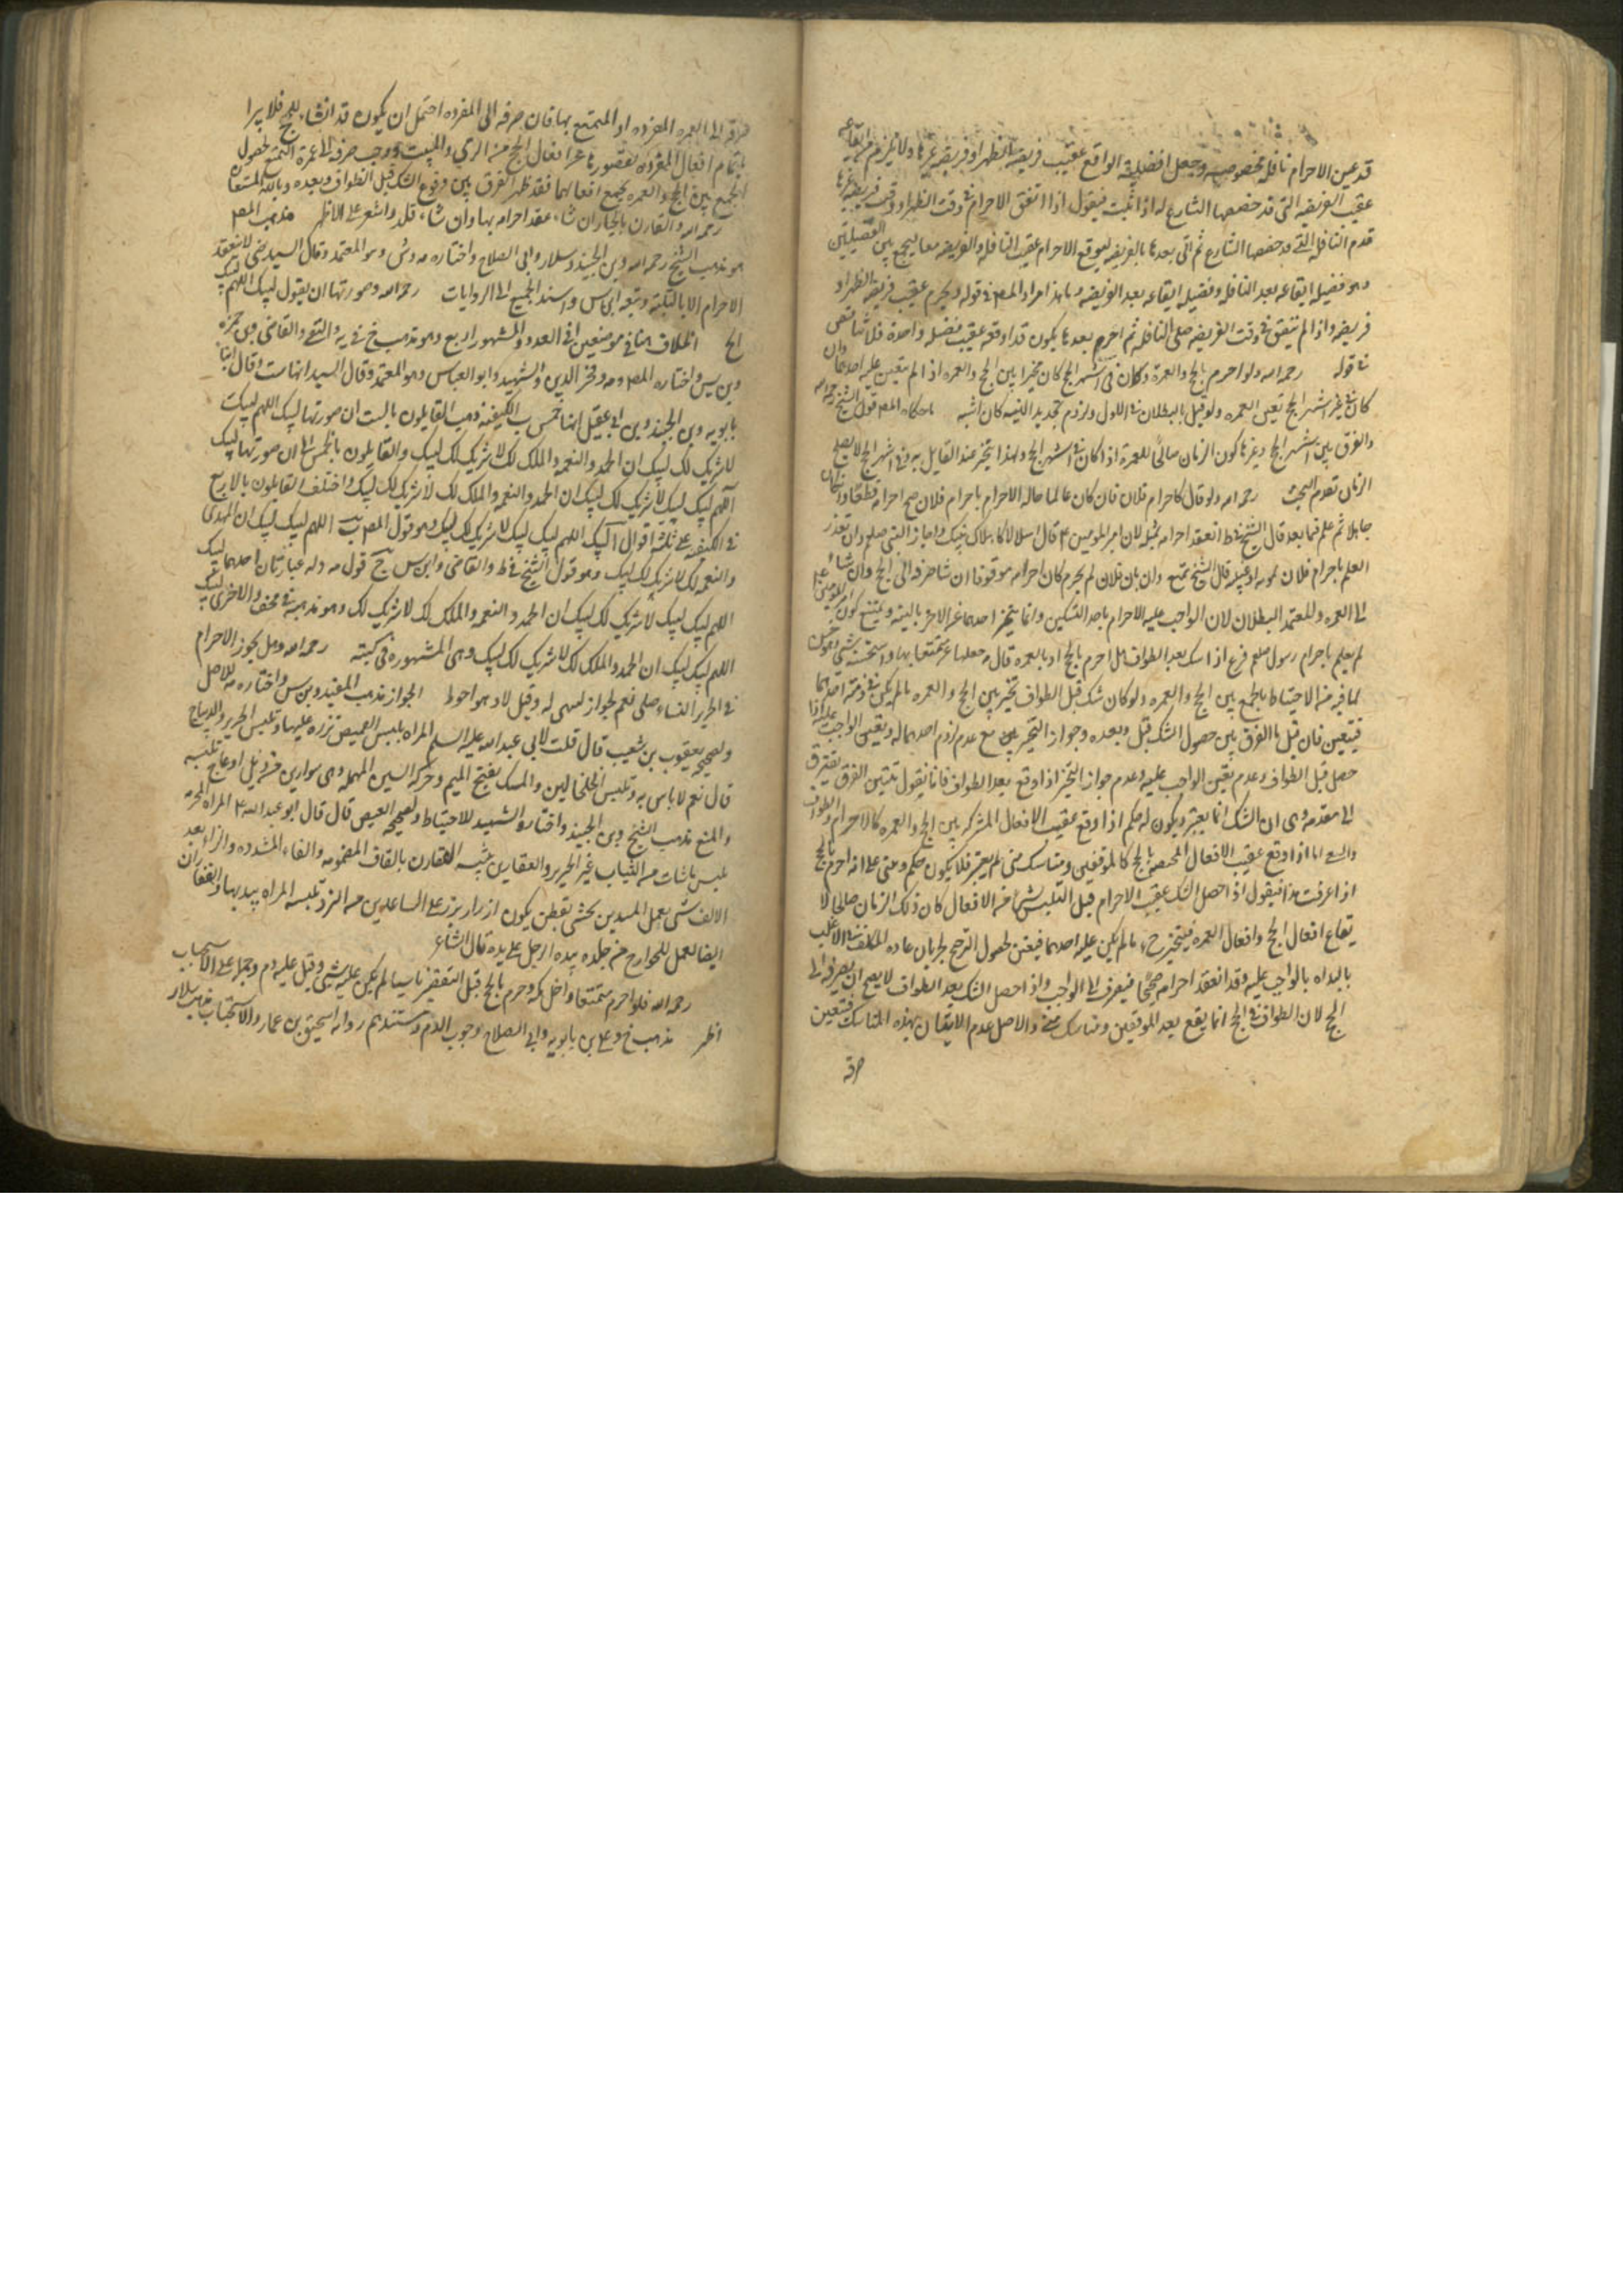 قد عين الاحرام نافلة مخصوصة وجعل افضلية الواقع عقيب فريضة الظهر او فريضة غيرها ولا يلزم من ايقاعه
عقيب الفريضة التي قد خصصها الشارع له اذا ثبت فيقول اذا اتفق الاحرام في وقت الظهر او وقت فريضة غيرها
قدم النافلة التي قد خصصها الشارع ثم اتى بعدها بالفريضة ليوقع الاحرام عقيب النافلة والفريضة معا ليجمع بين الفضيلتين
وهو فضيلة ايقاعه بعد النافلة وفضيلة ايقاعه بعد الفريضة وهذا مراد المص في قوله ويحرم عقيب فريضة الظهر او
فريضة واذا لم يتفق في وقت الفريضة صلى النافلة ثم احرم بعدها يكون قد اوقعه عقيب فضيلة واحدة فلا تنافي
في قوله رحمه الله ولو احرم بالحج والعمرة وكان في اشهر الحج كان مخيرا بين الحج والعمره اذا لم يتعين عليه احدهما وان
كان في غير اشهر الحج تعين العمره ولو قيل بالبطلان في الاول ولزوم تجديد النية كان اشبه ما حكاه المص قول الشيخ رحمه الله
والفرق بين اشهر الحج وغيرها كون الزمان صالحا للعمرة اذا كان في اشهر الحج ولهذا يتخير عند القايل به وفي غير اشهر الحج لا يصلح
الزمان تقدم البحث رحمه الله ولو قال كاحرام فلان فان كان عالما حاله الاحرام باحرام فلان صح احرامه قطعا وان كان
جاهلا ثم علم فيما بعد قال الشيخ في ط انعقد احرامه بمثله لان امير المومنين ع قال اهلالا كاهلال نبيك واجاز النبي صلعم وان تعذر
العلم باحرام فلان لموته او غيبته قال الشيخ يتمتع وان بان فلان لم يحرم كان احرامه موقوفا ان شا صرفه الى الحج وان شاء
الى العمره والمعتمد البطلان لان الواجب عليه الاحرام باحد النسكين وانما يتميز احدهما عن الاخر بالنية ويمنع كون امير المومنين ع
لم يعلم باحرام رسول صلعم فرع اذا شك بعد الطواف هل احرم بالحج او بالعمره قال مه جعلها عمرة متمتعا بها واستحسنه ش وهو حسن
لما فيه من الاحتياط بالجمع بين الحج والعمره ولو كان شك قبل الطواف تخير بين الحج والعمره ما لم يكن في ذمته احدهما
فيتعين فان قيل ما الفرق بين حصول الشك قبل وبعده وجواز التخير بين مع عدم لزوم احدهما له ويتعين الواجب عليه اذا
حصل قبل الطواف وعدم يقين الواجب عليه وعدم جواز التخير اذا وقع بعد الطواف فانا نقول تبيين الفرق يفتقر
الى مقدمة وهي ان الشك انما يعتبر ويكون له حكم اذا وقع عقيب الافعال المشتركة بين الحج والعمره كالاحرام والطواف
والسعي اما اذا وقع عقيب الافعال المختصة بالحج كالموقفين ومناسك منى لم يعتبر فلا يكون له حكم ومبنى على انه احرم بالحج
اذا عرفت هذا فيقول اذا حصل الشك عقيب الاحرام قبل التلبس بشئ من الافعال كان ذلك الزمان صالحا لا
يقاع افعال الحج وافعال العمره فيتخير ح ما لم يكن عليه احدهما فيتعين لحصول الترجيح لجريان عادة المكلف في الاغلب
بالبداه بالواجب عليه وقد انعقد احرامه صحيحا فيصرف الى الواجب واذا حصل الشك بعد الطواف لا يصح ان يصرفه الى
الحج لان الطواف في الحج انما يقع بعد الموقفين ومناسك منى والاصل عدم الاتيان بهذه المناسك فتعين
صرفه
صرفه الى العمره المفرده او المتمتع بها فان صرفه الى المفرده احتمل ان يكون قد انشاء للحج فلا يبرا
باتمام افعال المفرده لقصورها عن افعال الحج من الرمي والمبيت ووجب صرفه الى عمرة التمتع لحصول
الجمع بين الحج والعمره بجميع افعالهما فقد ظهر الفرق بين وقوع الشك قبل الطواف وبعده وبالله المستعان
رحمه الله والقارن بالخيار ان شاء عقد احرامه بها وان شاء قلد واشعر على الاظهر مذهب المص
هو مذهب الشيخ رحمه الله وبن الجنيد وسلار وابي الصلاح واختاره مه وش وهو المعتمد وقال السيد رضي لا ينعقد
الاحرام الا بالتلبية وتبعه ابن س واسند الجميع الى الروايات رحمه الله وصورتها ان يقول لبيك اللهم لبيك
الخ الخلاف هنا في موضعين ا في العدد والمشهور اربع وهو مذهب خ في يه والتقي والقاضي وبن حمزه
وبن س واختاره المص ومه وفخر الدين والشهيد وابو العباس وهو المعتمد وقال السيد انها ست وقال ابنا
بابويه وبن الجنيد وبن ابي عقيل انها خمس ب الكيفية ذهب القايلون بالست ان صورتها لبيك اللهم لبيك
لا شريك لك لبيك ان الحمد والنعمه والملك لك لا شريك لك لبيك والقايلون بالخمس الى ان صورتها لبيك
اللهم لبيك لبيك لا شريك لك لبيك ان الحمد والنعمه والملك لك لا شريك لك لبيك واختلف القايلون بالاربع
في الكيفية على ثلثة اقوال ا لبيك اللهم لبيك لبيك لا شريك لك لبيك وهو قول المص ب اللهم لبيك لبيك ان الحمد
والنعمه لك لا شريك لك لبيك وهو قول الشيخ في ط والقاضي وابن س ج قول مه وله عبارتان احدهما لبيك
اللهم لبيك لبيك لا شريك لك لبيك ان الحمد والنعمه والملك لك لا شريك لك وهو مذهبه في والاخرى لبيك
اللهم لبيك لبيك ان الحمد والملك لك لا شريك لك لبيك وهي المشهوره في كتبه رحمه الله وهل يجوز الاحرام
في الحرير للنساء قيل نعم لجواز لبسهن له وقيل لا وهو احوط الجواز مذهب المفيد وبن س واختاره مه للاصل
ولصحيحه يعقوب بن شعيب قال قلت لابي عبد الله عليه السلم المراه يلبس القميص تزره عليها وتلبس الحرير والديباج
قال نعم لا باس به وتلبس الخلخالين والمسك بفتح الميم وحركة السين المهمله وهي سوارين من ذبل او عاج تلبسه
والمنع مذهب الشيخ وبن الجنيد واختاره الشهيد للاحتياط ولصحيحه العيص قال قال ابو عبد الله ع المراه المحرمه
تلبس ما شات من الثياب غير الحرير والقفازين تثنيه القفاز بالقاف المضمومه والفاء المشدده والزا بعد
الالف شئ يعمل لليدين يحشى بقطن يكون له ازرار يزر على الساعدين من البرد تلبسه المراه بيديها والقفازان
ايضا لعمل للجوارح من جلده بيده الرجل على يده قال الشاعر
رحمه الله فلو احرم متمتعا ودخل مكه وحرم بالحج قبل التقصير ناسيا لم يكن عليه شئ وقيل عليه دم وحمله على الاستحباب
اظهر مذهب خ وعلي بن بابويه وابي الصلاح وجوب الدم ومستندهم رواية اسحق بن عمار والاستحباب مذهب سلار